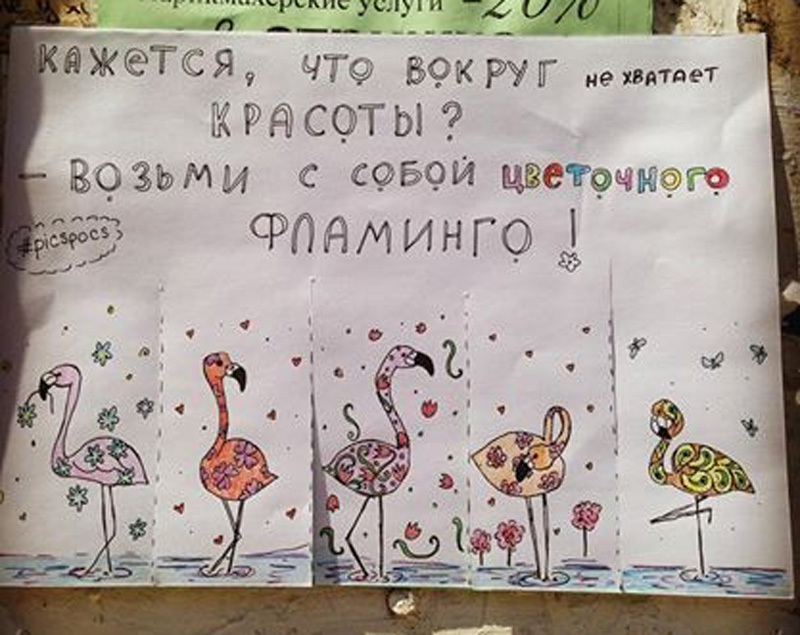 Парикмахерские услуги -20%
КАЖЕТСЯ, ЧТО ВОКРУГ НЕ ХВАТАЕТ
КРАСОТЫ?
- ВОЗЬМИ С СОБОЙ ЦВЕТОЧНОГО
ФЛАМИНГО!
#picspocs